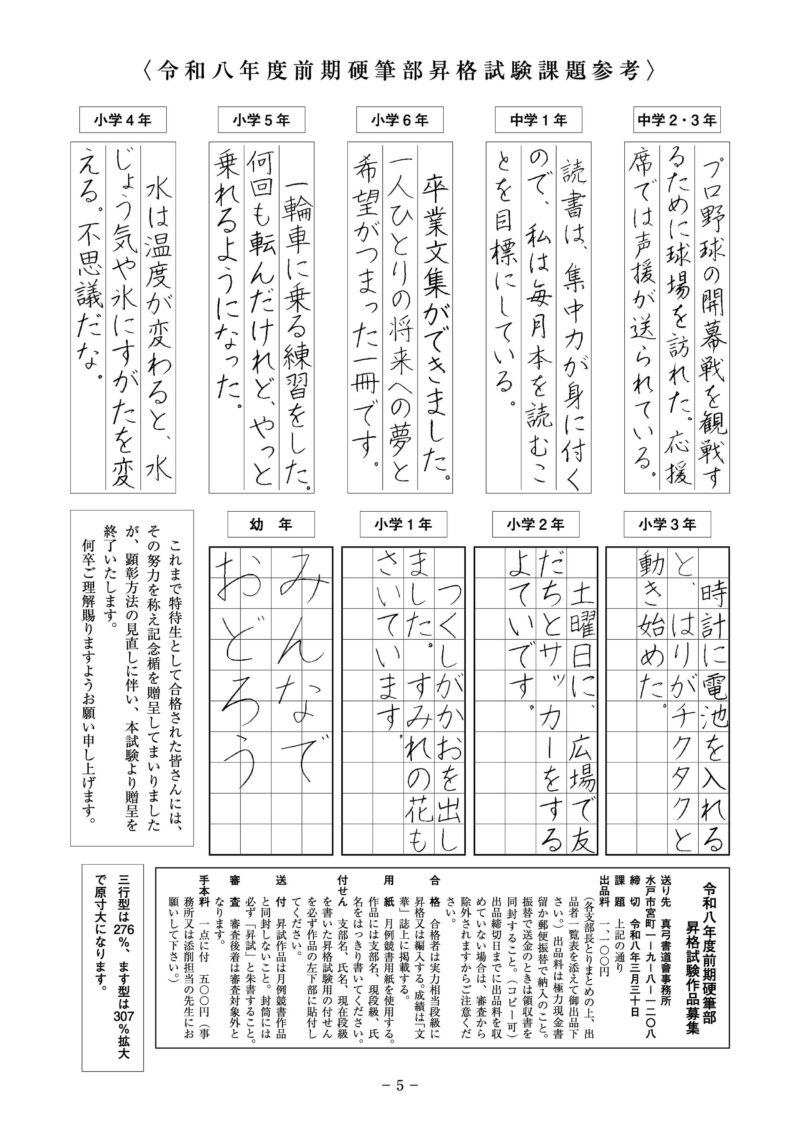 〈令和八年度前期硬筆部昇格試験課題参考〉
中学2・3年
プロ野球の開幕戦を観戦す
るために球場を訪れた。応援
席では声援が送られている。
中学1年
読書は、集中力が身に付く
ので、私は毎月本を読むこ
とを目標にしている。
小学6年
卒業文集ができました。
一人ひとりの将来への夢と
希望がつまった一冊です。
小学5年
一輪車に乗る練習をした。
何回も転んだけれど、やっと
乗れるようになった。
小学4年
水は温度が変わると、水
じょう気や氷にすがたを変
える。不思議だな。
小学3年
時計に電池を入れる
と、はりがチクタクと
動き始めた。
小学2年
土曜日に、広場で友
だちとサッカーをする
よていです。
小学1年
つくしがかおを出し
ました。すみれの花も
さいています。
幼年
みんなで
おどろう
これまで特待生として合格された皆さんには、
その努力を称え記念楯を贈呈してまいりました
が、顕彰方法の見直しに伴い、本試験より贈呈を
終了いたします。
何卒ご理解賜りますようお願い申し上げます。
令和八年度前期硬筆部
昇格試験作品募集
送り先 真弓書道會事務所
水戸市宮町一ー九ー八ー一二〇八
締切 令和八年三月三十日
課題 上記の通り
出品料 一、一〇〇円
(各支部長とりまとめの上、出
品者一覧表を添えて御出品下
さい。)出品料は極力現金書
留か郵便振替で納入のこと。
振替で送金のときは領収書を
同封すること。(コピー可)
出品締切日までに出品料を収
めていない場合は、審査から
除外されますからご注意くだ
さい。
合格 合格者は実力相当段級に
昇格又は編入する。成績は「文
華」誌上に掲載する。
用紙 月例競書用紙を使用する。
作品には支部名、現段級、氏
名をはっきり書いてください。
付せん 支部名、氏名、現在段級
を書いた昇格試験用の付せん
を必ず作品の左下部に貼付し
てください。
送付 昇試作品は月例競書作品
と同封しないこと。封筒には
必ず「昇試」と朱書すること。
審査 審査後着は審査対象外と
なります。
手本料 一点に付 五〇〇円(事
務所又は添削担当の先生にお
願いして下さい。)
三行型は276%、ます型は307%拡大
で原寸大になります。
－5－